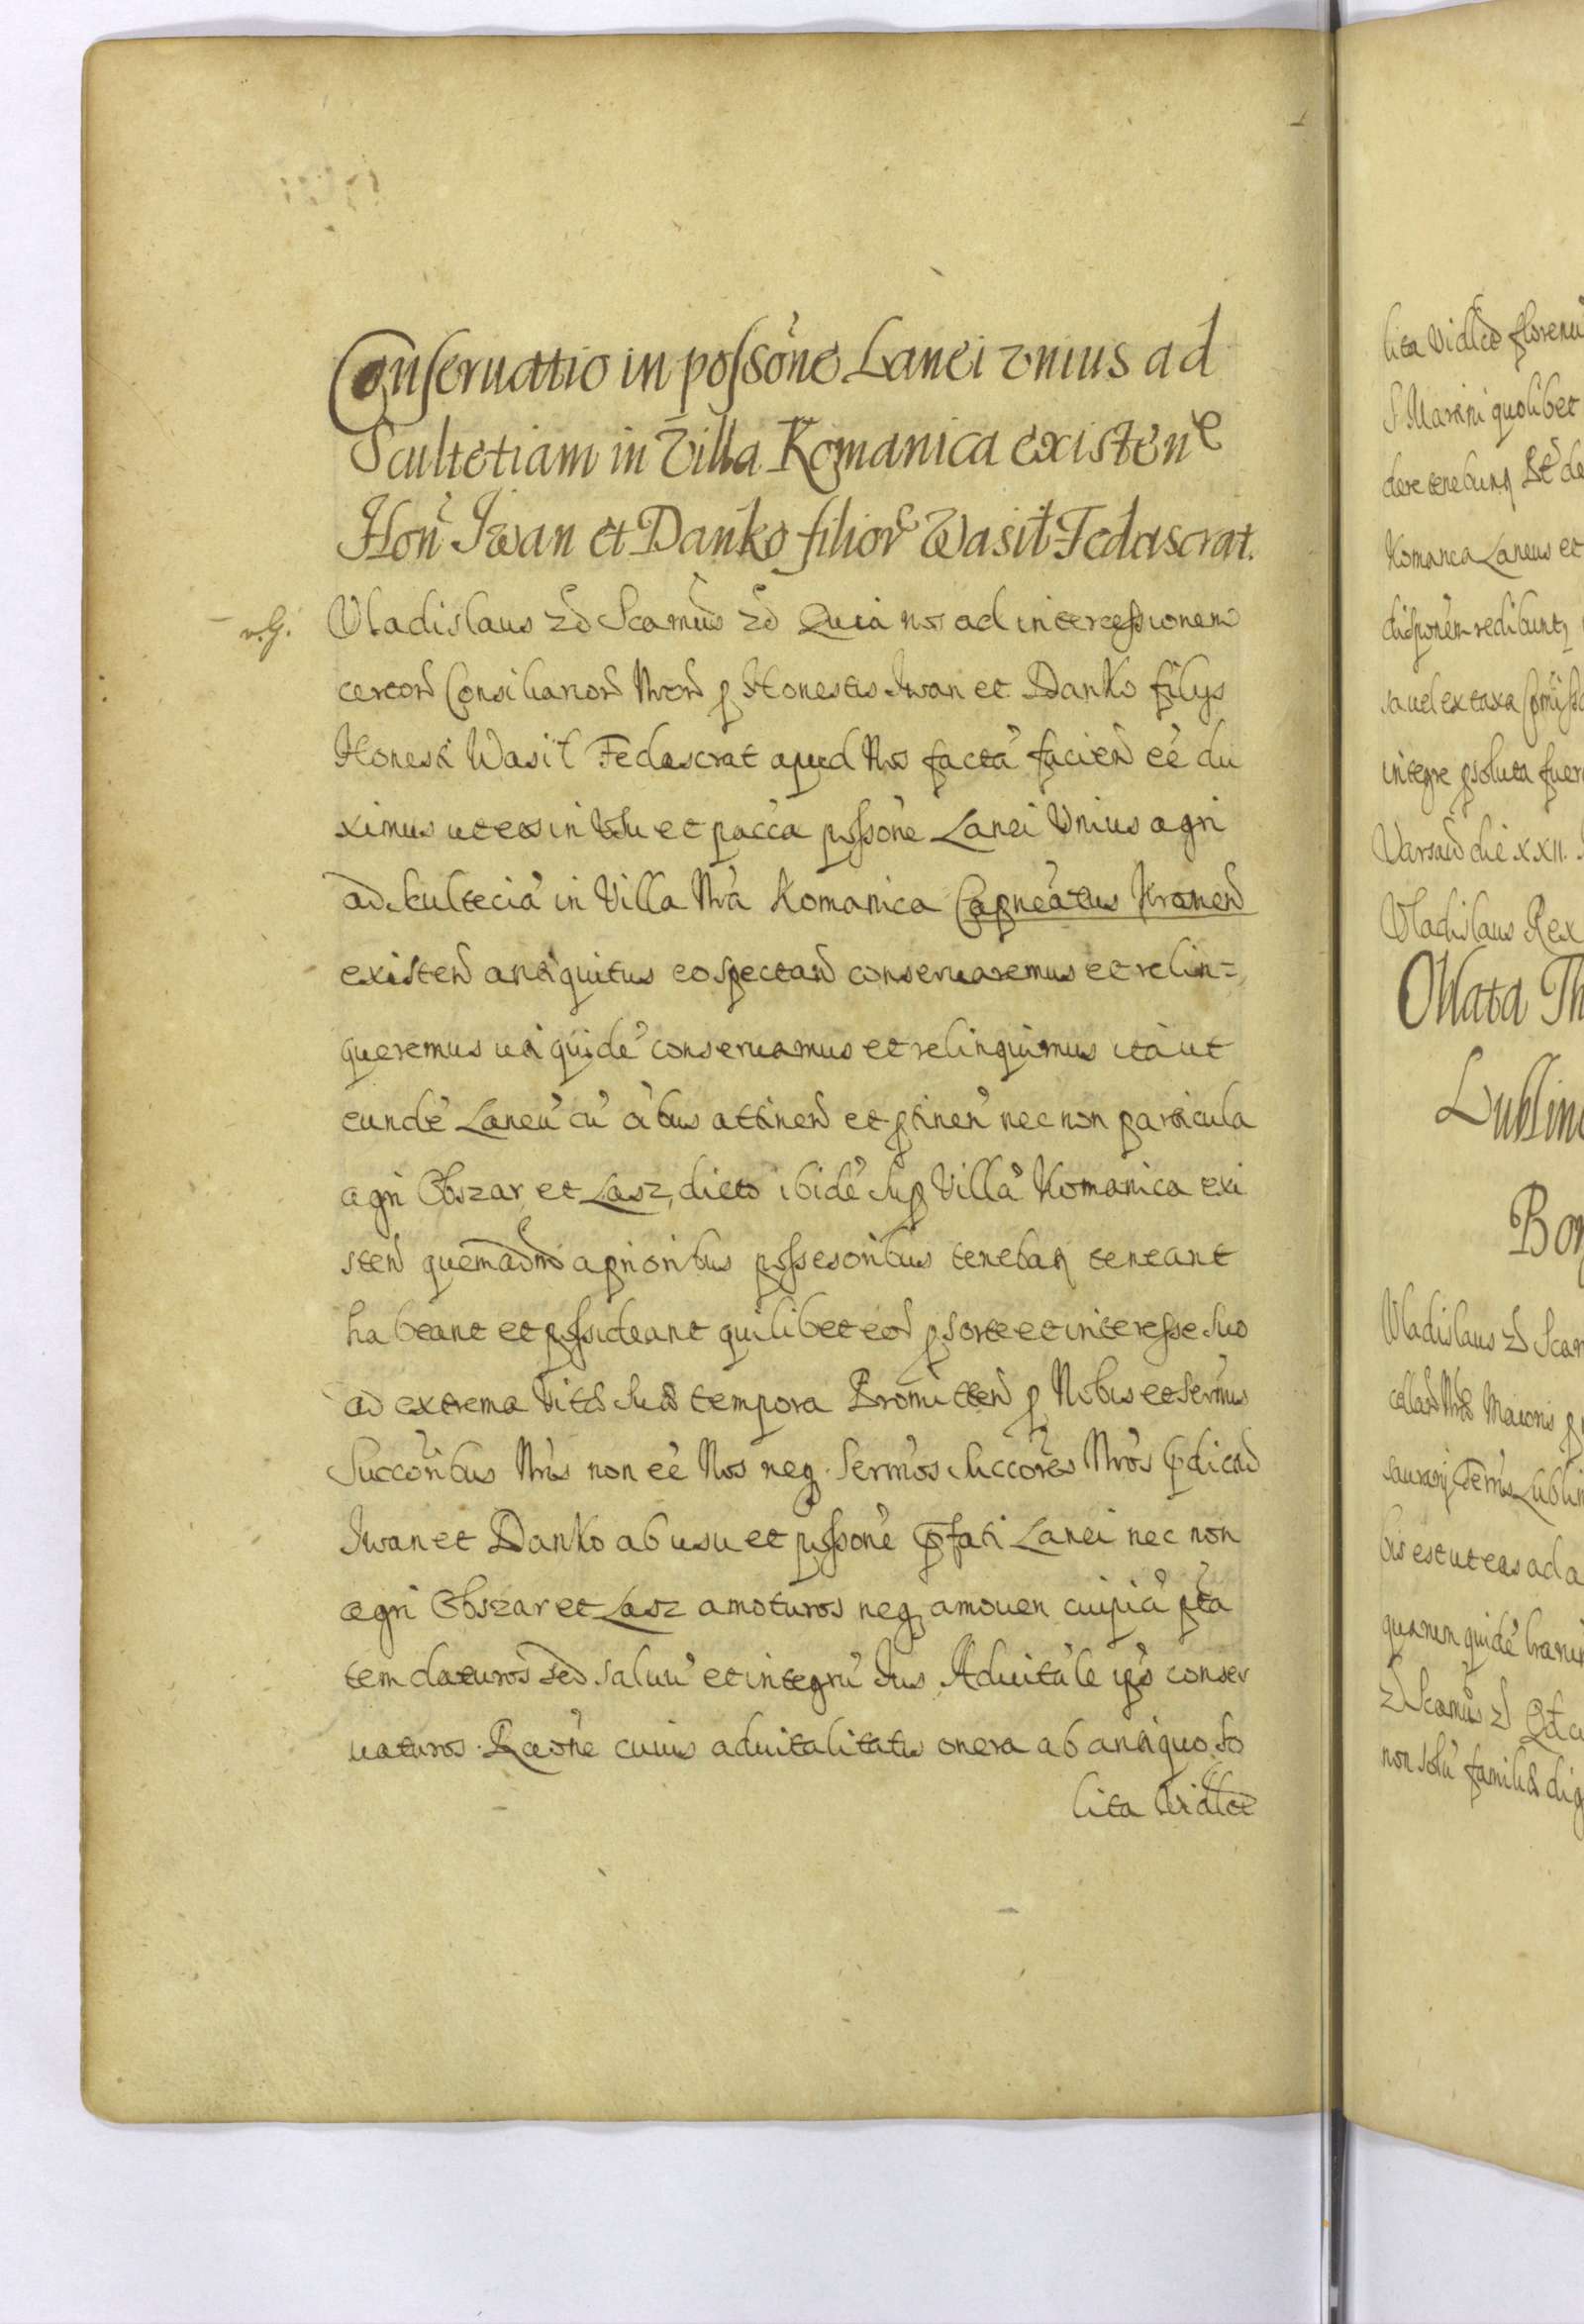 Conseruatio in possone Lanei vnius ad
Scultetiam in Villa Komanica existen
Hon Iwan et Danko filior Wasil Fedascrat.
v. G.
Vladislaus Scamus Quia nos ad intercessionem
certor Consiliarior Nror p Honestis Iwan et Danko filys
Honesti Wasil Fedascrat apud Nos facta facien ee du
ximus ut eos in Usu et pacca possone Lanei Unius agri
ad scultecia in Villa Nra Komanica Capneatus Kranen
existen antiquitus eo spectan conseruaremus et relin=
queremus uti quide conseruamus et relinquimus ita ut
eunde Laneu cu oibus attinen et ptinen nec non particula
agri Obszar et Lasz dicto ibide sup Villa Komanica exi
sten quemadmo a prioribus possesoribus tenebaq teneant
habeant et possideant quilibet eor p sorte et interesse suo
ad extrema Vitæ suæ tempora Promitten p Nobis et Sermis
Succoribus Nris non ee Nos neq Sermos Succores Nros pdictos
Iwan et Danko ab usu et possone pfati Lanei nec non
agri Obszar et Lasz amoturos neq amouen cuipia pta
tem daturos sed saluu et integru Ius Aduitale ips conser
uaturos. Raone cuius aduitalitatis onera ab antiquo so
lita Vidlct
lita Vidlct florenu
S Martini quolibet
dere tenebunq Post de
Komanca Laneus et
disponem redibunt
sa uel ex taxa Comisso
integre psoluta fuer
Varsaw die XXII.
Vladislaus Rex
Oblata Th
Lublin
Bon
Vladislaus Scam
cellar Nræ Maioris p
Terris Lublin
bis est ut eas ad a
quarum quide
Scamus Qd cu
non solu familiæ dig